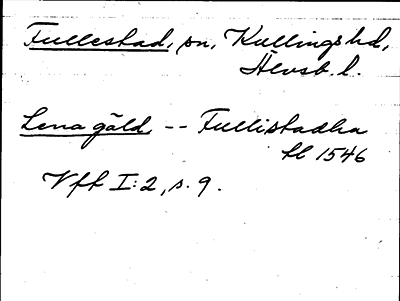 Fullestad, sn, Kullings hd,
Älvsb. l.
Lena gäld -- Fullistadha
hl 1546
Vfh I:2, s. 9.